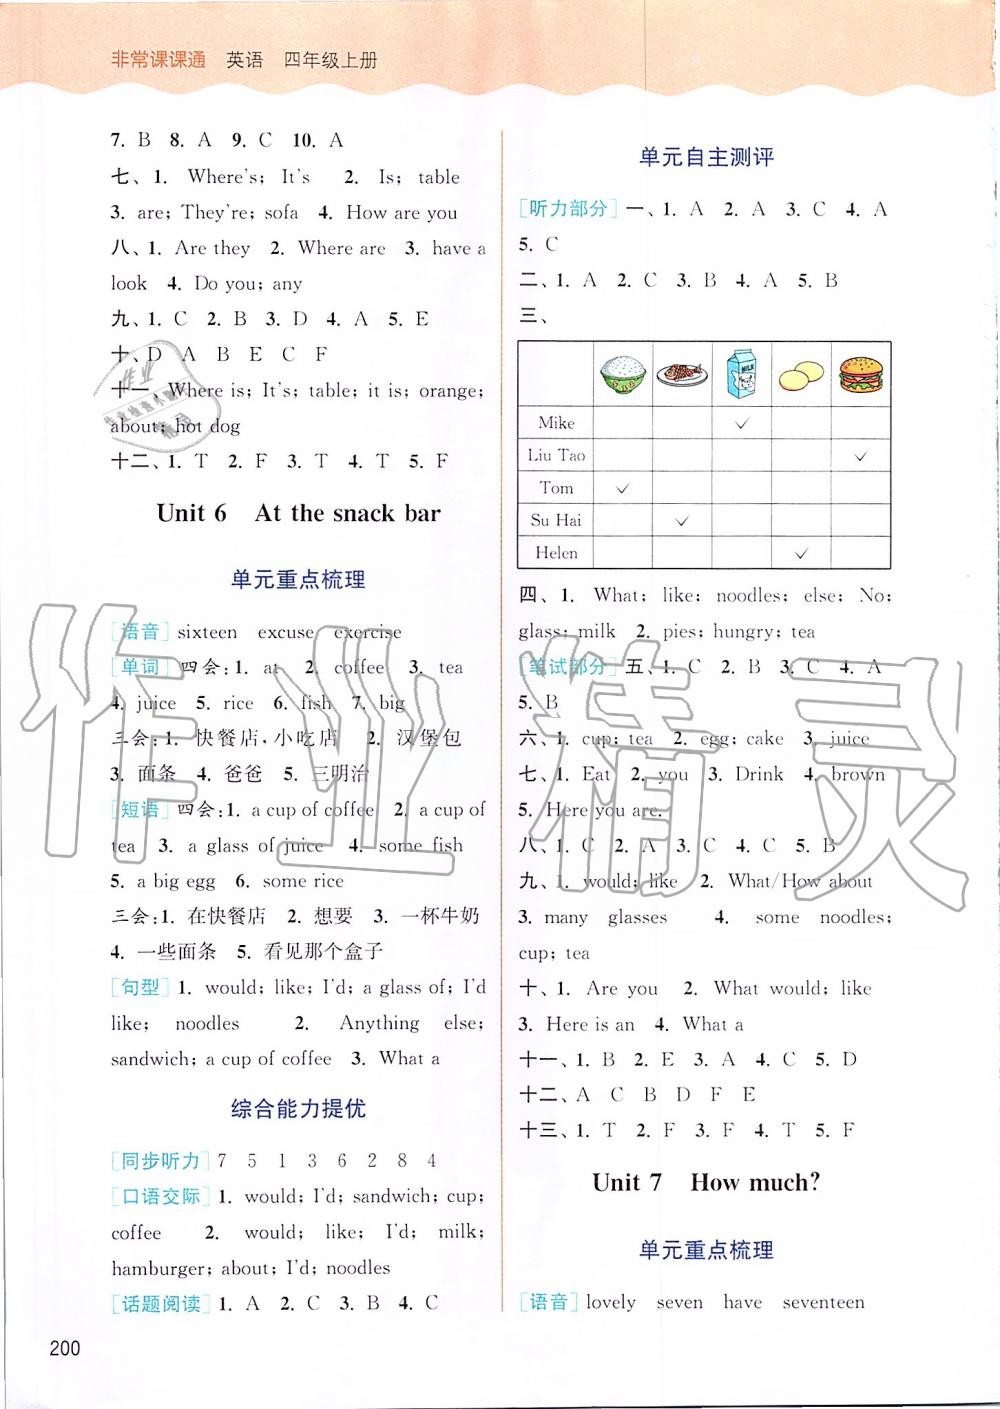 非常课课通 英语 四年级上册
7. B 8. A 9. C 10. A
七、1. Where's; It's 2. Is; table
3. are; They're; sofa 4. How are you
八、1. Are they 2. Where are 3. have a
look 4. Do you; any
九、1. C 2. B 3. D 4. A 5. E
十、D A B E C F
十一、Where is; It's; table; it is; orange;
about; hot dog
十二、1. T 2. F 3. T 4. T 5. F
Unit 6 At the snack bar
单元重点梳理
[语音] sixteen excuse exercise
[单词] 四会:1. at 2. coffee 3. tea
4. juice 5. rice 6. fish 7. big
三会:1. 快餐店,小吃店 2. 汉堡包
3. 面条 4. 爸爸 5. 三明治
[短语] 四会:1. a cup of coffee 2. a cup of
tea 3. a glass of juice 4. some fish
5. a big egg 6. some rice
三会:1. 在快餐店 2. 想要 3. 一杯牛奶
4. 一些面条 5. 看见那个盒子
[句型] 1. would; like; I'd; a glass of; I'd
like; noodles 2. Anything else;
sandwich; a cup of coffee 3. What a
综合能力提优
[同步听力] 7 5 1 3 6 2 8 4
[口语交际] 1. would; I'd; sandwich; cup;
coffee 2. would; like; I'd; milk;
hamburger; about; I'd; noodles
[话题阅读] 1. A 2. C 3. B 4. C
200
单元自主测评
[听力部分] 一、1. A 2. A 3. C 4. A
5. C
二、1. A 2. C 3. B 4. A 5. B
三、
MILK
Mike ✓
Liu Tao ✓
Tom ✓
Su Hai ✓
Helen ✓
四、1. What; like; noodles; else; No;
glass; milk 2. pies; hungry; tea
[笔试部分] 五、1. C 2. B 3. C 4. A
5. B
六、1. cup; tea 2. egg; cake 3. juice
七、1. Eat 2. you 3. Drink 4. brown
5. Here you are.
八、1. C 2. A 3. C 4. C 5. B
九、1. would; like 2. What/How about
3. many glasses 4. some noodles;
cup; tea
十、1. Are you 2. What would; like
3. Here is an 4. What a
十一、1. B 2. E 3. A 4. C 5. D
十二、A C B D F E
十三、1. T 2. F 3. F 4. T 5. F
Unit 7 How much?
单元重点梳理
[语音] lovely seven have seventeen
作业精灵